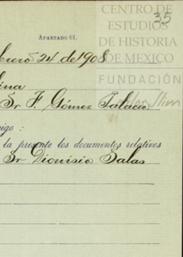 CENTRO DE
ESTUDIOS
DE HISTORIA
DE MEXICO
FUNDACIÓN
35
APARTADO 61.
24 de 1908
Sr. F. Gómez Palacio
igo :
la presente los documentos relativos
Sr Dionisio Salas